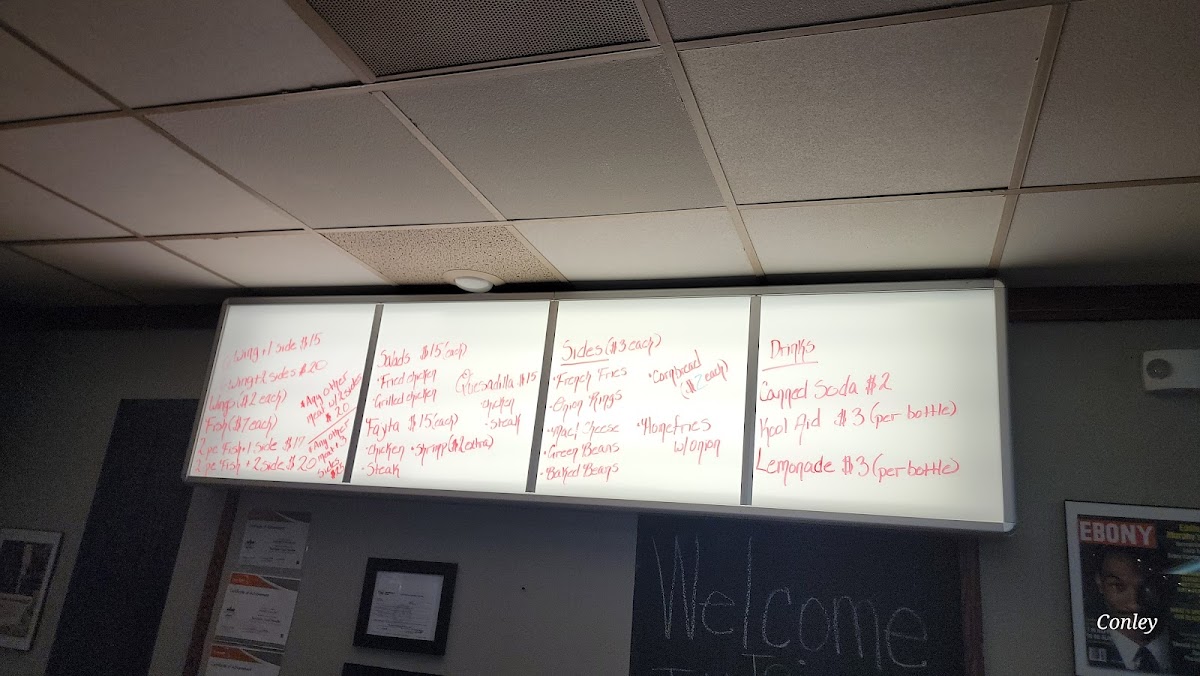 Wing + 1 side $15
Wing + 2 sides $20
Wings ($2 each)
Fish ($7 each)
2 pc Fish + 1 side $17
2 pc Fish + 2 side $20
* Any other
meat w/ 2 sides
$20
* Any other
meat + 3
sides
Salads $15 (each)
• Fried chicken
• Grilled chicken
Quesadilla $15
• chicken
• steak
Fajita $15 (each)
• chicken • shrimp ($2 extra)
• Steak
Sides ($3 each)
• French Fries
• Onion Rings
• Mac & Cheese
• Green Beans
• Baked Beans
• Cornbread
($2 each)
• Homefries
w/ onion
Drinks
Canned Soda $2
Kool Aid $3 (per bottle)
Lemonade $3 (per bottle)
Welcome
To
EBONY
Conley